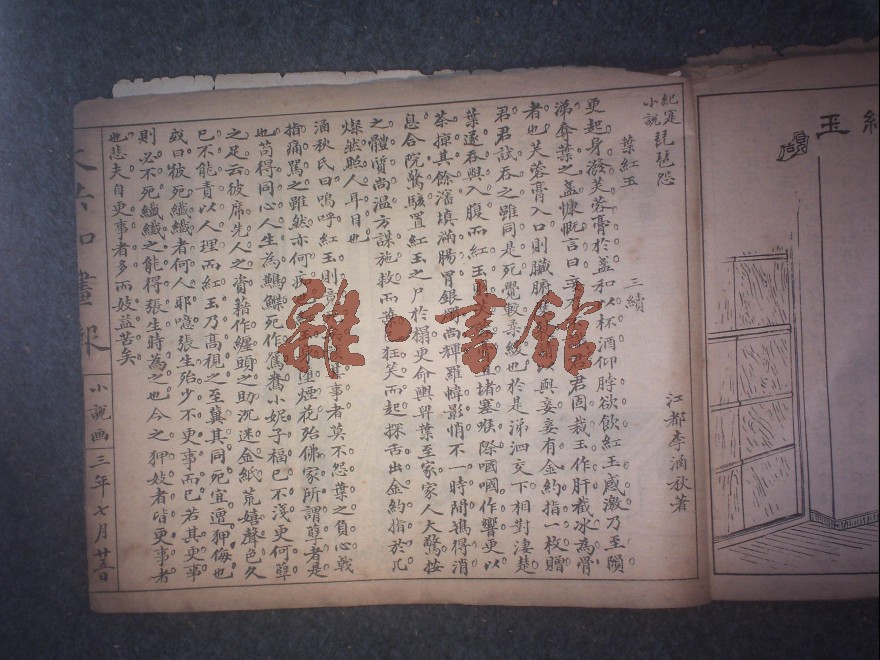 紀實小說 琵琶怨
葉紅玉 三續 江都李涵秋著
更起身潑芙蓉膏於盞和以杯酒仰脖欲飲紅玉感激乃至隕
涕奪葉之盞慷慨言曰 君固裁玉作肝截冰為骨
者也芙蓉膏入口則臟腑 與妾妾有金約指一枚贈
君君試吞之雖同是死覺較柔緩也於是涕泗交下相對淒楚
葉遂吞與入腹而紅玉 堵塞喉際嗰嗰作響更以
茶 其餘瀋填滿腸胃銀 尚輝羅幃影悄不一時間 得消
息合院驚駭置紅玉之尸於榻更命輿舁葉至家家人大驚按
之體質尚溫方謀施救而 狂笑而起探舌出金約指於几
燦然照人耳目也
涵秋氏曰嗚呼紅玉則竟 事者莫不怨葉之負心戟
指痛罵之雖然亦何 墮煙花殆佛家所謂孽者是
也苟得同心人生為鶼鰈死作鴛鴦小妮子福已不淺更何孽
之足云彼席先人之資藉作纏頭之助沉迷金紙荒嬉聲色久
已不能責以人理而紅玉乃高視之至冀其同死宜遭狎侮也
或曰彼死纖纖者何人耶噫張生殆少不更事而已若其更事
則必不死纖纖纖之能得張生時為之也今之狎妓者皆更事者
也悲夫自更事者多而妓益苦矣
畫報
小說画
三年七月廿五日
紅玉
雜·書館